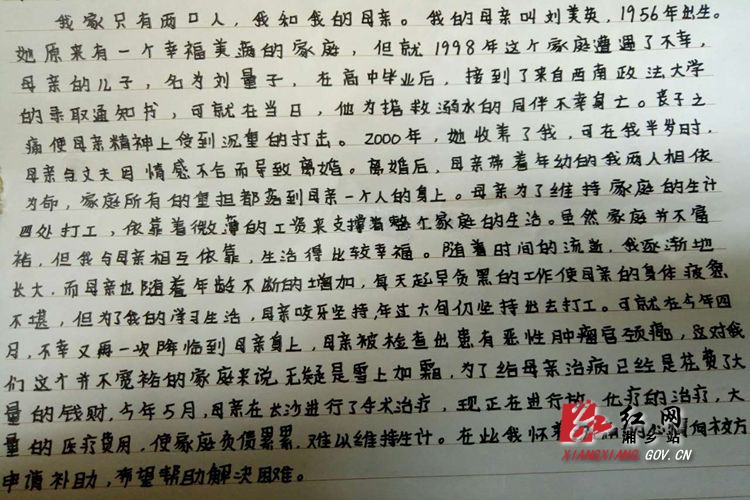 我家只有两口人，我和我的母亲。我的母亲叫刘美英，1956年出生。
她原来有一个幸福美满的家庭，但就1998年这个家庭遭遇了不幸，
母亲的儿子，名为刘量子，在高中毕业后，接到了来自西南政法大学
的录取通知书，可就在当日，他为拯救溺水的同伴不幸身亡。丧子之
痛使母亲精神上受到沉重的打击。2000年，她收养了我，可在我半岁时，
母亲与丈夫因情感不合而导致离婚。离婚后，母亲带着年幼的我两人相依
为命，家庭所有的重担都落到母亲一个人的身上。母亲为了维持家庭的生计
四处打工，依靠着微薄的工资来支撑着整个家庭的生活。虽然家庭并不富
裕，但我与母亲相互依靠，生活得比较幸福。随着时间的流逝，我逐渐地
长大，而母亲也随着年龄不断的增加，每天起早贪黑的工作使母亲的身体疲惫
不堪，但为了我的学习生活，母亲咬牙坚持，年过六旬仍坚持出去打工。可就在今年四
月，不幸又再一次降临到母亲身上，母亲被检查出患有恶性肿瘤宫颈癌，这对我
们这个并不宽裕的家庭来说无疑是雪上加霜，为了给母亲治病已经是花费了大
量的钱财，今年5月，母亲在长沙进行了手术治疗，现正在进行放，化疗的治疗，大
量的医疗费用，使家庭负债累累，难以维持生计。在此我怀 向校方
申请补助，希望帮助解决困难。
红网
湘乡站
XIANGXIANG.GOV.CN